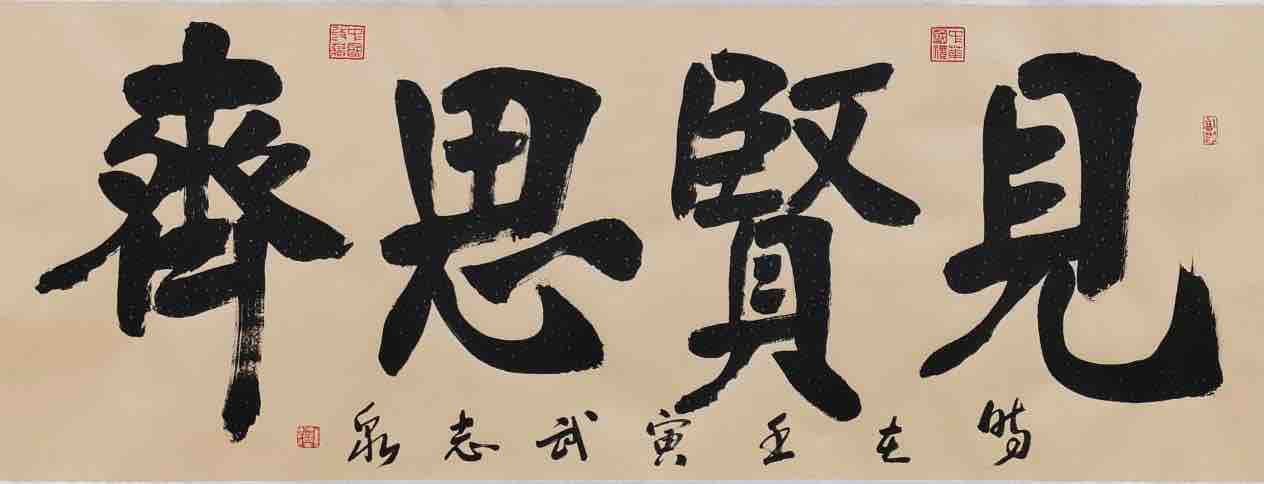 見賢思齊
時在壬寅武志泉